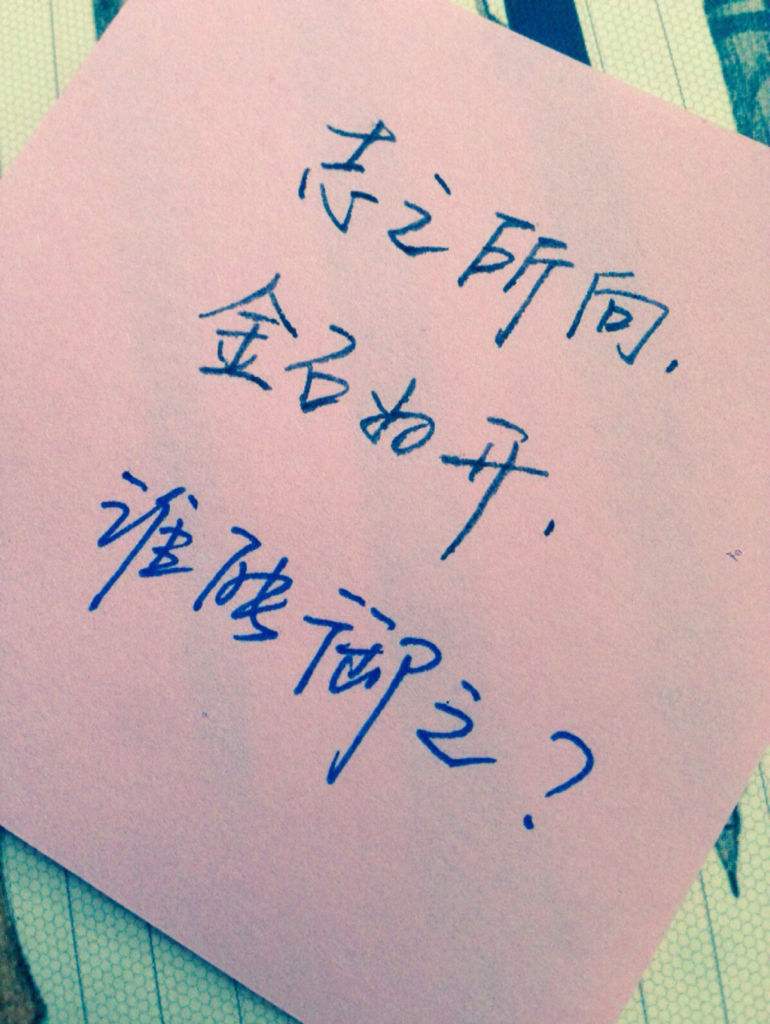 志之所向.
金石如开.
谁能御之?